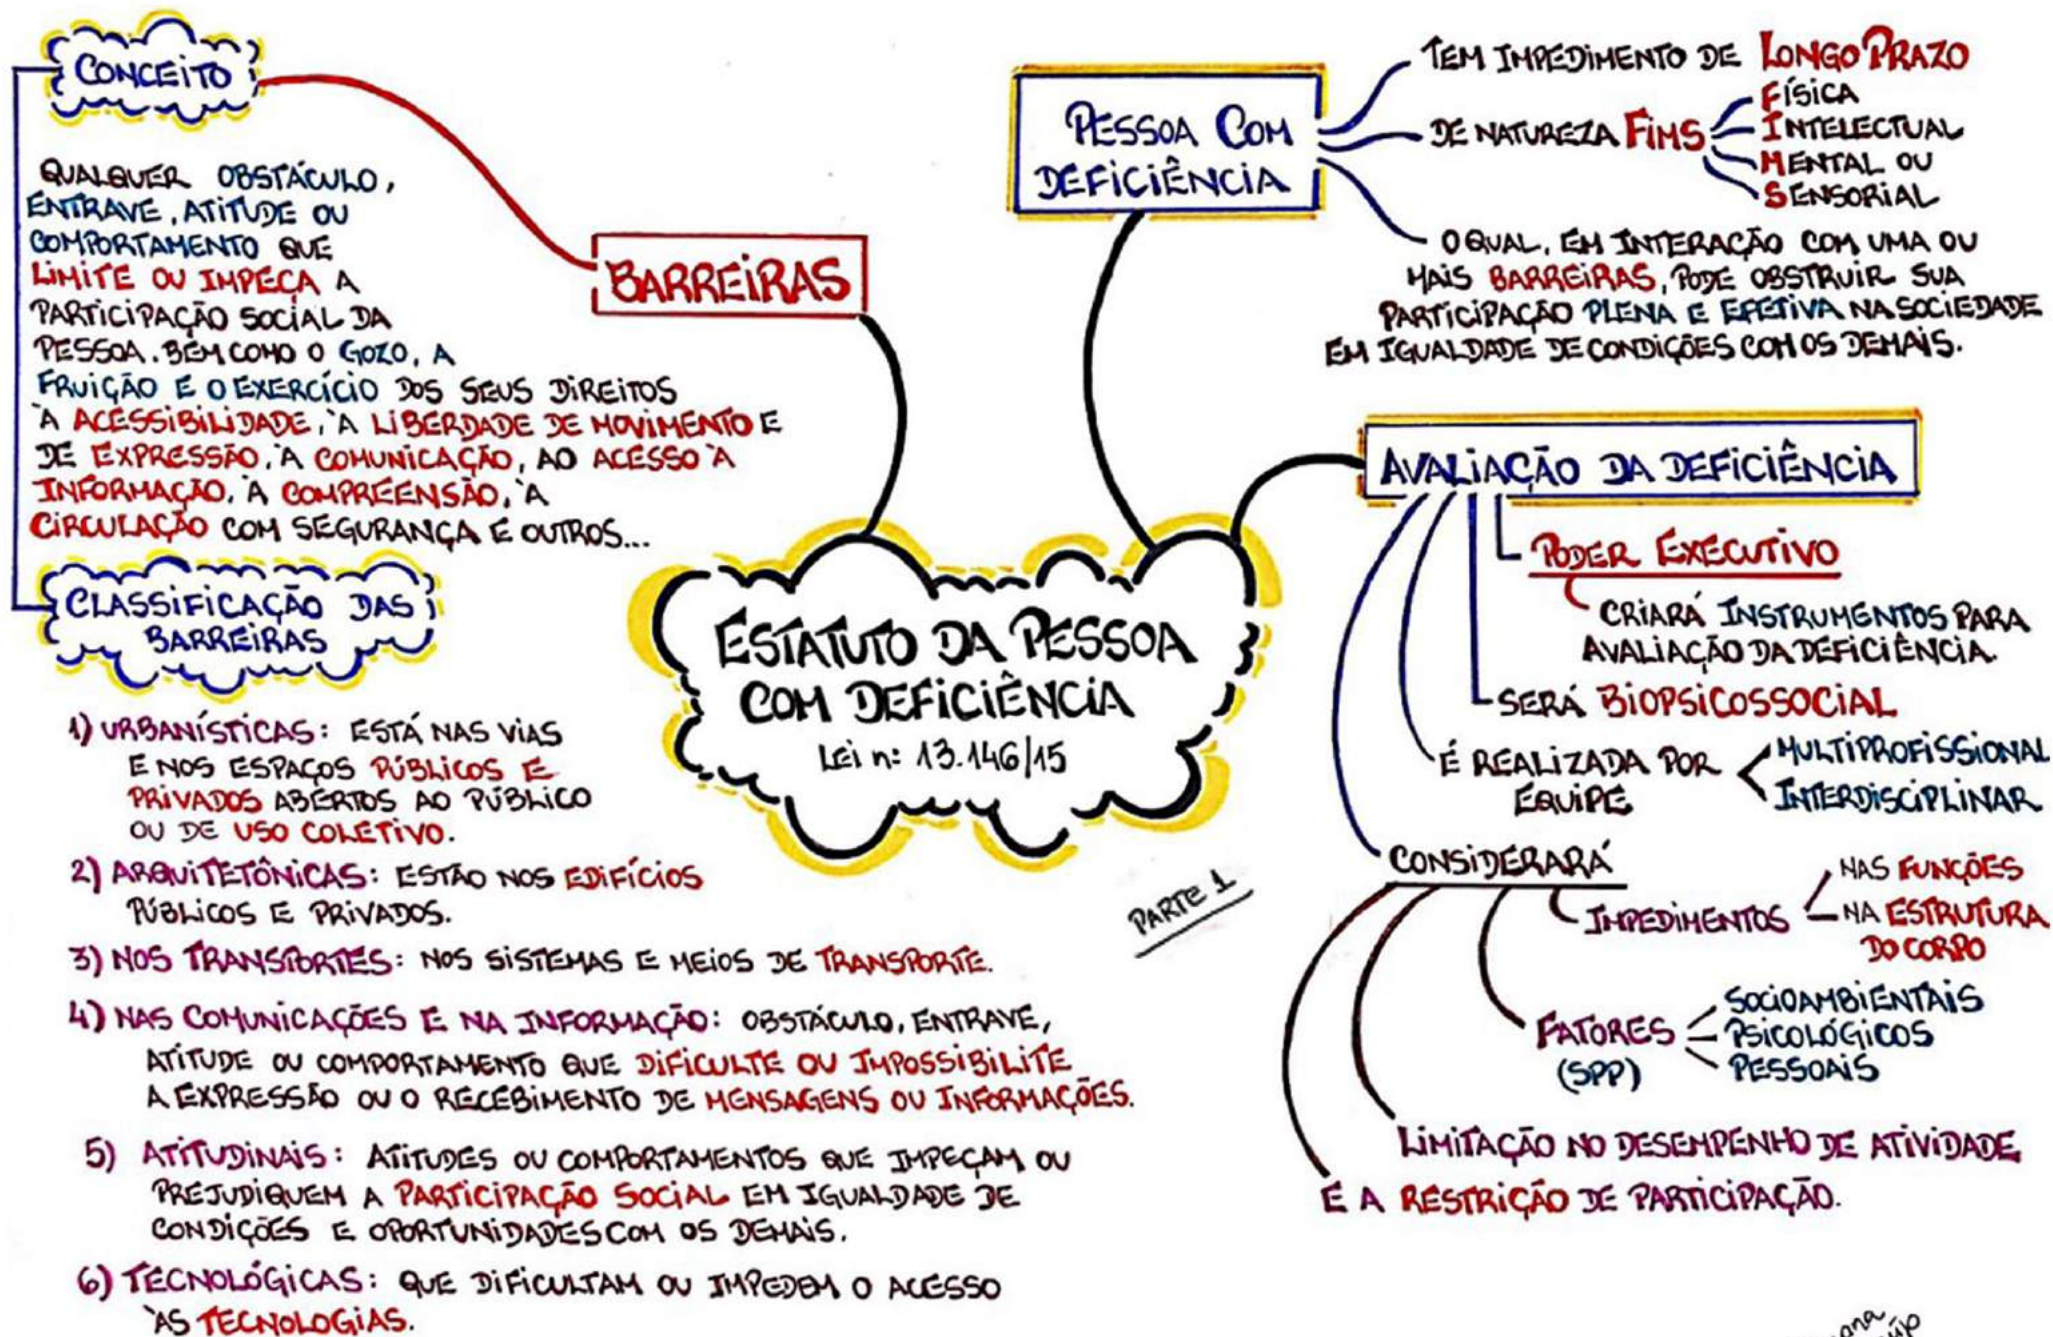 CONCEITO
QUALQUER OBSTÁCULO,
ENTRAVE, ATITUDE OU
COMPORTAMENTO QUE
LIMITE OU IMPEÇA A
PARTICIPAÇÃO SOCIAL DA
PESSOA, BEM COMO O GOZO, A
FRUIÇÃO E O EXERCÍCIO DOS SEUS DIREITOS
À ACESSIBILIDADE, À LIBERDADE DE MOVIMENTO E
DE EXPRESSÃO, À COMUNICAÇÃO, AO ACESSO À
INFORMAÇÃO, À COMPREENSÃO, À
CIRCULAÇÃO COM SEGURANÇA E OUTROS...
CLASSIFICAÇÃO DAS
BARREIRAS
1) URBANÍSTICAS: ESTÁ NAS VIAS
E NOS ESPAÇOS PÚBLICOS E
PRIVADOS ABERTOS AO PÚBLICO
OU DE USO COLETIVO.
2) ARQUITETÔNICAS: ESTÃO NOS EDIFÍCIOS
PÚBLICOS E PRIVADOS.
3) NOS TRANSPORTES: NOS SISTEMAS E MEIOS DE TRANSPORTE.
4) NAS COMUNICAÇÕES E NA INFORMAÇÃO: OBSTÁCULO, ENTRAVE,
ATITUDE OU COMPORTAMENTO QUE DIFICULTE OU IMPOSSIBILITE
A EXPRESSÃO OU O RECEBIMENTO DE MENSAGENS OU INFORMAÇÕES.
5) ATITUDINAIS: ATITUDES OU COMPORTAMENTOS QUE IMPEÇAM OU
PREJUDIQUEM A PARTICIPAÇÃO SOCIAL EM IGUALDADE DE
CONDIÇÕES E OPORTUNIDADES COM OS DEMAIS.
6) TECNOLÓGICAS: QUE DIFICULTAM OU IMPEDEM O ACESSO
ÀS TECNOLOGIAS.
BARREIRAS
ESTATUTO DA PESSOA
COM DEFICIÊNCIA
Lei n: 13.146/15
PARTE 1
PESSOA COM
DEFICIÊNCIA
TEM IMPEDIMENTO DE LONGO PRAZO
DE NATUREZA FIMS
FÍSICA
INTELECTUAL
MENTAL OU
SENSORIAL
O QUAL, EM INTERAÇÃO COM UMA OU
MAIS BARREIRAS, PODE OBSTRUIR SUA
PARTICIPAÇÃO PLENA E EFETIVA NA SOCIEDADE
EM IGUALDADE DE CONDIÇÕES COM OS DEMAIS.
AVALIAÇÃO DA DEFICIÊNCIA
PODER EXECUTIVO
CRIARÁ INSTRUMENTOS PARA
AVALIAÇÃO DA DEFICIÊNCIA.
SERÁ BIOPSICOSSOCIAL
É REALIZADA POR
EQUIPE
MULTIPROFISSIONAL
INTERDISCIPLINAR
CONSIDERARÁ
IMPEDIMENTOS
NAS FUNÇÕES
NA ESTRUTURA
DO CORPO
FATORES
(SPP)
SOCIOAMBIENTAIS
PSICOLÓGICOS
PESSOAIS
LIMITAÇÃO NO DESEMPENHO DE ATIVIDADE
E A RESTRIÇÃO DE PARTICIPAÇÃO.